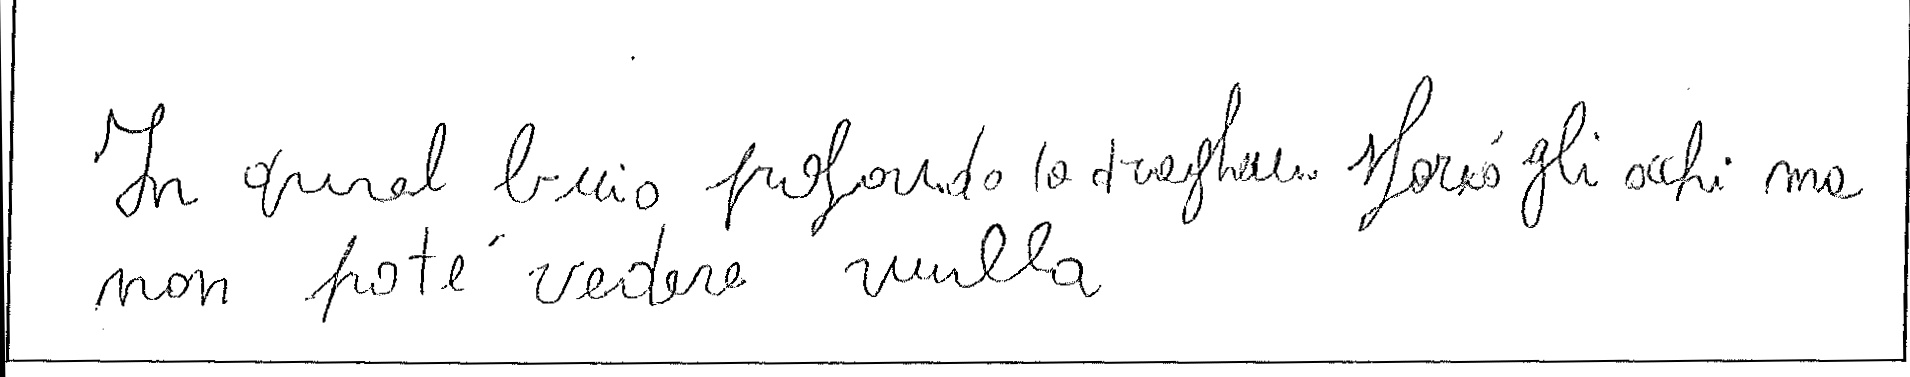 In quel buio profondo lo dragham sforzò gli occhi ma
non poté vedere nulla